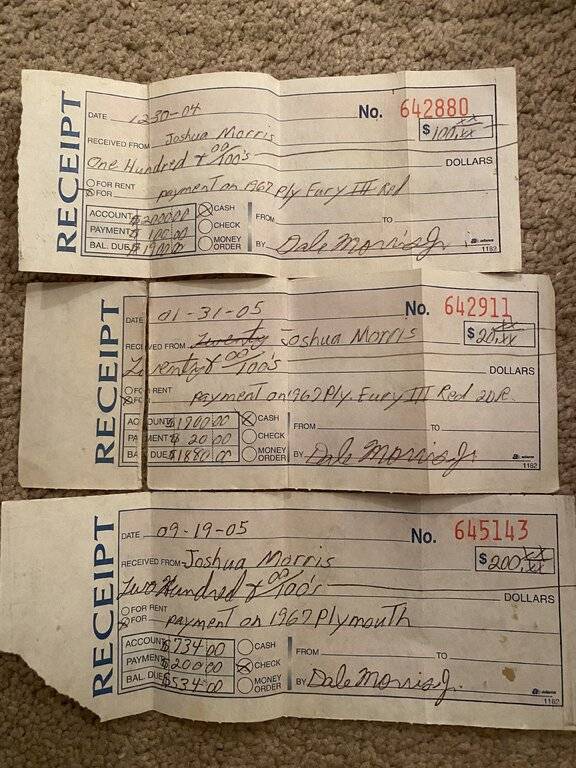 RECEIPT
DATE 12-30-04 No. 642880
RECEIVED FROM Joshua Morris $100.xx
One Hundred & 00/100's DOLLARS
FOR RENT
FOR payment on 1967 Ply Fury III Red
ACCOUNT $2000.00 CASH FROM TO
PAYMENT $100.00 CHECK
BAL. DUE $1900.00 MONEY ORDER BY Dale Morris Jr.
1182
RECEIPT
DATE 01-31-05 No. 642911
RECEIVED FROM Twenty Joshua Morris $20.xx
Twenty & 00/100's DOLLARS
FOR RENT
FOR payment on 1967 Ply. Fury III Red 2DR.
ACCOUNT $1900.00 CASH FROM TO
PAYMENT $20.00 CHECK
BAL. DUE $1880.00 MONEY ORDER BY Dale Morris Jr
1182
RECEIPT
DATE 09-19-05 No. 645143
RECEIVED FROM Joshua Morris $200.xx
Two Hundred & 00/100's DOLLARS
FOR RENT
FOR payment on 1967 Plymouth
ACCOUNT $734.00 CASH FROM TO
PAYMENT $200.00 CHECK
BAL. DUE $534.00 MONEY ORDER BY Dale Morris Jr.
1182